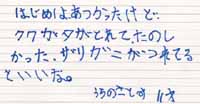 はじめはあつかったけど、
クワガタがとれて、たのし
かった。ザリガニがつれてる
といいな。
うちのこです 11才